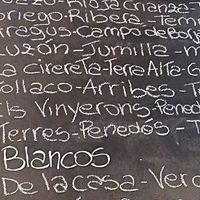 Rioja Crianza-
riego-Ribera-Tem
ragus-Campo de Borja
uzón-Jumilla-m
a cirereta-Terra Alta-G
ollaco-Arribes-T
Els Vinyerons-Pened
Terres-Penedes-T
Blancos
De la casa-Verd